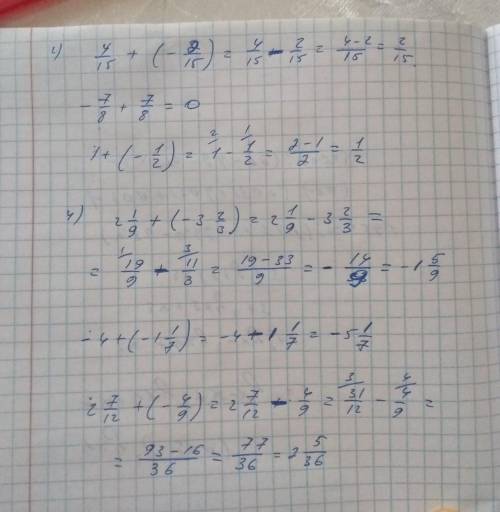 1) 4/15 + (- 2/15) = 4/15 - 2/15 = 4-2/15 = 2/15
- 7/8 + 7/8 = 0
1 + (- 1/2) = ²1 - ¹1/2 = 2-1/2 = 1/2
4) 2 1/9 + (-3 2/3) = 2 1/9 - 3 2/3 =
= ¹19/9 - ³11/3 = 19-33/9 = - 14/9 = -1 5/9
-4 + (-1 1/7) = -4 - 1 1/7 = -5 1/7
2 7/12 + (- 4/9) = 2 7/12 - 4/9 = ³31/12 - ⁴4/9 =
= 93-16/36 = 77/36 = 2 5/36